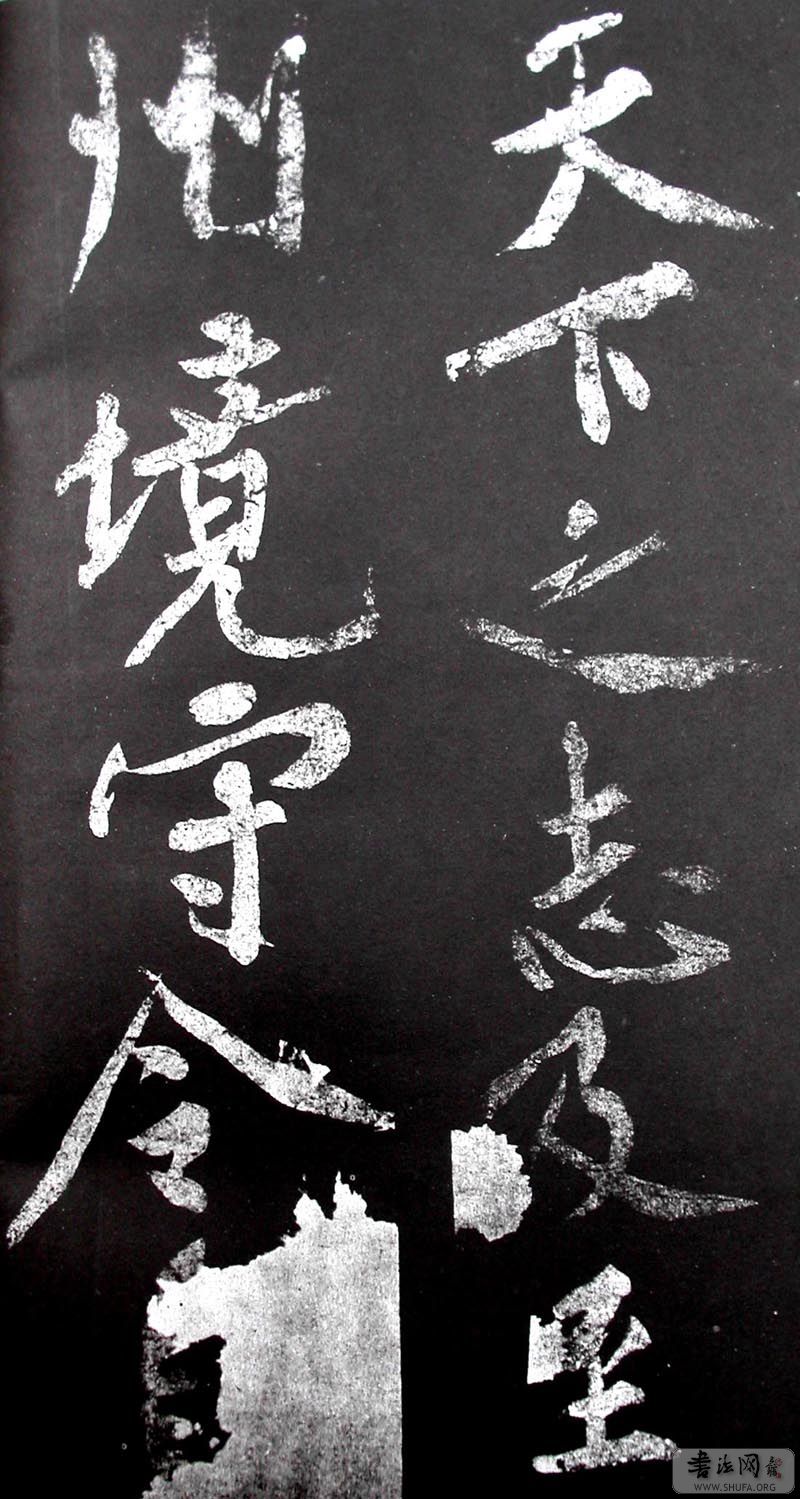 天下之志及至
州境守令
書法网
WWW.SHUFA.ORG